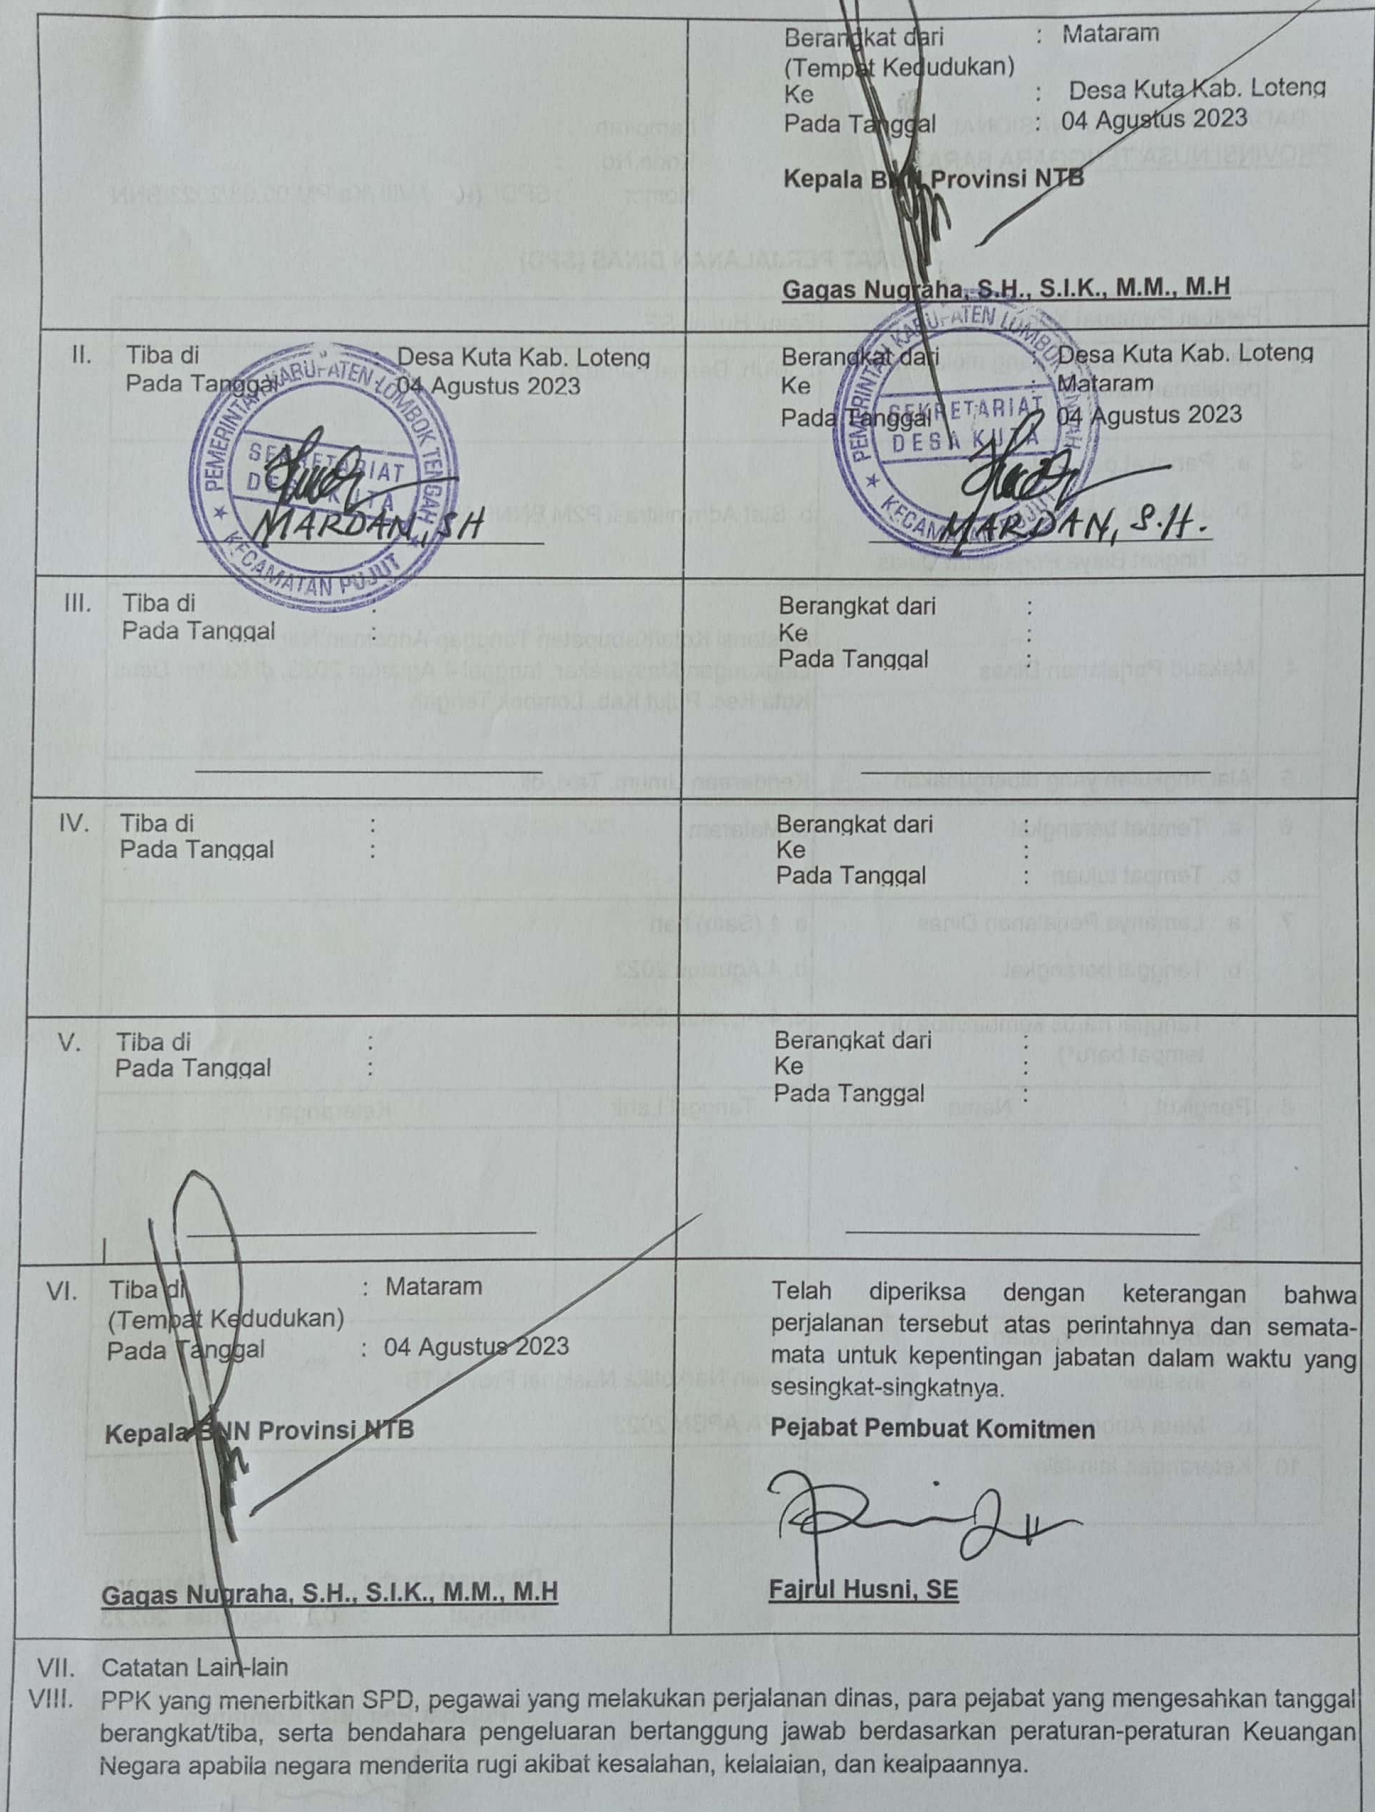 Berangkat dari : Mataram
(Tempat Kedudukan)
Ke : Desa Kuta Kab. Loteng
Pada Tanggal : 04 Agustus 2023
Kepala BNN Provinsi NTB
Gagas Nugraha, S.H., S.I.K., M.M., M.H
II. Tiba di Desa Kuta Kab. Loteng
Pada Tanggal 04 Agustus 2023
PEMERINTAH KABUPATEN LOMBOK TENGAH
SEKRETARIAT
DESA KUTA
KECAMATAN PUJUT
MARDAN, SH
Berangkat dari : Desa Kuta Kab. Loteng
Ke : Mataram
Pada Tanggal : 04 Agustus 2023
PEMERINTAH KABUPATEN LOMBOK TENGAH
SEKRETARIAT
DESA KUTA
KECAMATAN PUJUT
MARDAN, S.H.
III. Tiba di :
Pada Tanggal :
Berangkat dari :
Ke :
Pada Tanggal :
IV. Tiba di :
Pada Tanggal :
Berangkat dari :
Ke :
Pada Tanggal :
V. Tiba di :
Pada Tanggal :
Berangkat dari :
Ke :
Pada Tanggal :
VI. Tiba di : Mataram
(Tempat Kedudukan)
Pada Tanggal : 04 Agustus 2023
Kepala BNN Provinsi NTB
Gagas Nugraha, S.H., S.I.K., M.M., M.H
Telah diperiksa dengan keterangan bahwa
perjalanan tersebut atas perintahnya dan semata-
mata untuk kepentingan jabatan dalam waktu yang
sesingkat-singkatnya.
Pejabat Pembuat Komitmen
Fajrul Husni, SE
VII. Catatan Lain-lain
VIII. PPK yang menerbitkan SPD, pegawai yang melakukan perjalanan dinas, para pejabat yang mengesahkan tanggal
berangkat/tiba, serta bendahara pengeluaran bertanggung jawab berdasarkan peraturan-peraturan Keuangan
Negara apabila negara menderita rugi akibat kesalahan, kelalaian, dan kealpaannya.